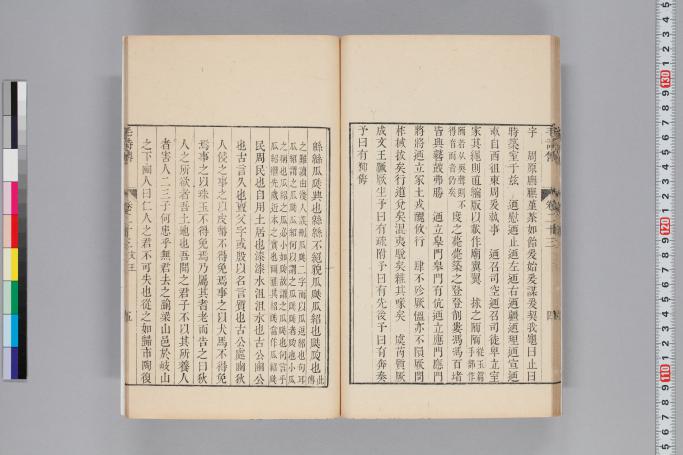 宇　周原膴膴堇荼如飴爰始爰謀爰契我龜曰止曰
時築室于茲　迺慰迺止迺左迺右迺疆迺理迺宣迺
畝自西徂東周爰執事　迺召司空迺召司徒俾立室
家其繩則直縮版以載作廟翼翼　捄之陾陾
度之薨薨築之登登削屢馮馮百堵
皆興鼛鼓弗勝　迺立皋門皋門有伉迺立應門應門
將將迺立冢土戎醜攸行　肆不殄厥慍亦不隕厥問
柞棫拔矣行道兌矣混夷駾矣維其喙矣　虞芮質厥
成文王蹶厥生予曰有疏附予曰有先後予曰有奔奏
予曰有禦侮
毛詩傳
卷二十三
四
緜緜瓜瓞興也緜緜不絕貌瓜瓞瓜紹也瓞瓝也
民周民也自用土居也漆漆水沮沮水也古公豳公
也古言久也亶父字或殷以名言質也古公處豳狄
人侵之事之以皮幣不得免焉事之以犬馬不得免
焉事之以珠玉不得免焉乃屬其耆老而告之曰狄
人之所欲者吾土地也吾聞之君子不以其所養人
者害人二三子何患乎無君去之踰梁山邑於岐山
之下豳人曰仁人之君不可失也從之如歸市陶復
毛詩傳
文王
五